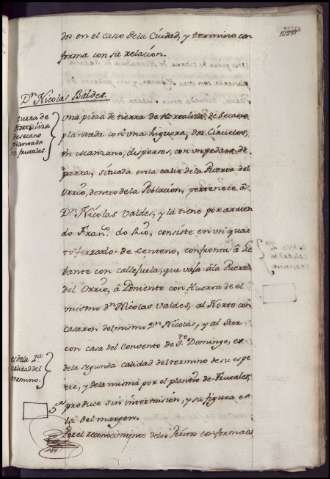 dos en el casco de la Ciudad, y termino con
forma con su relacion.
Dn. Nicolas Baldes.
tierra de
Hortaliza
de secano
plantada
de frutales
Una pieza de tierra de Hortaliza de secano
plantada con una higuera, dos Ciruelos,
un manzano, dispersos, con un pedazo de
parra, situada en la calle de la Puerta del
Orrio, dentro de la Poblacion, pertenece a
Dn. Nicolas Valdes, y la tiene por arrien
do Franco. do Rio, consiste en un quar
to ferrado de senteno, confronta a Le
bante con callejuela, que vaja a la Puerta
del Orrio, a Poniente con Huerta de el
mismo Dn. Nicolas Valdes, al Norte con
casa del mismo Dn. Nicolas, y al Sur
con casa del Convento de Sto. Domingo, es
de la segunda calidad del termino de su espe
cie, y de la misma por el plantio de frutales,
produce sin intermision, y su figura es
la del margen.
es de la 2a.
calidad del
termino.
Por el reconocimiento de los Peritos conforma